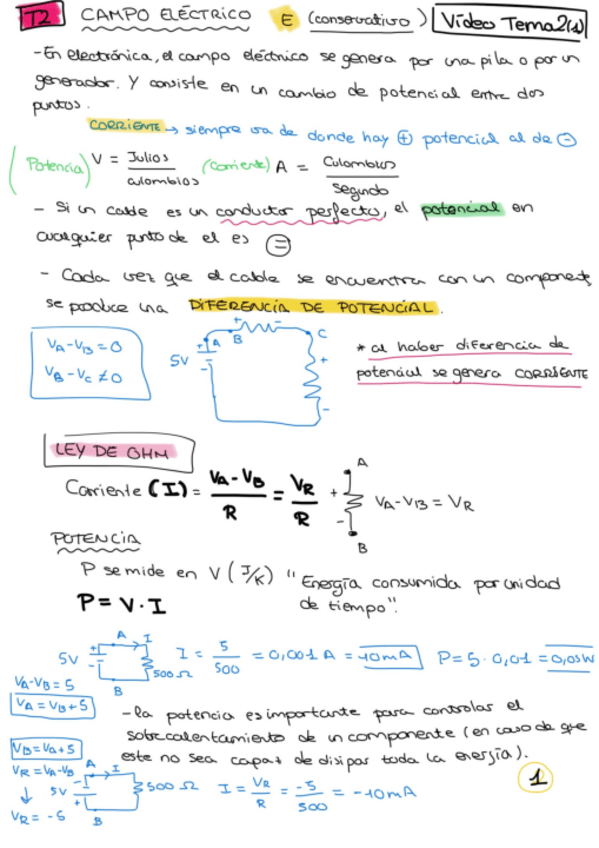 T2 CAMPO ELÉCTRICO E (conservativo) Vídeo Tema 2(1)
-En electrónica, el campo eléctrico se genera por una pila o por un
generador. Y consiste en un cambio de potencial entre dos
puntos.
CORRIENTE → siempre va de donde hay ⊕ potencial al de ⊖
(Potencia) V = Julios / culombios (Corriente) A = Culombios / Segundo
- Si un cable es un conductor perfecto, el potencial en
cualquier punto de el es =
- Cada vez que el cable se encuentra con un componente,
se produce una DIFERENCIA DE POTENCIAL.
VA-VB = 0
VB-VC ≠ 0
5V + - A B + - C + -
* al haber diferencia de
potencial se genera CORRIENTE
LEY DE OHM
Corriente (I) = VA - VB / R = VR / R
+ - A B VA-VB = VR
POTENCIA
P se mide en V (J/K) "Energía consumida por unidad
de tiempo".
P = V · I
5V + - A I 500Ω B I = 5 / 500 = 0,001 A = 10mA P = 5 · 0,01 = 0,05W
VA-VB = 5
VA = VB + 5
- la potencia es importante para controlar el
sobrecalentamiento de un componente (en caso de que
este no sea capaz de disipar toda la energía).
VB = VA + 5
VR = VA-VB
↓
VR = -5
5V - + A I 500 Ω B I = VR / R = -5 / 500 = -10mA
1